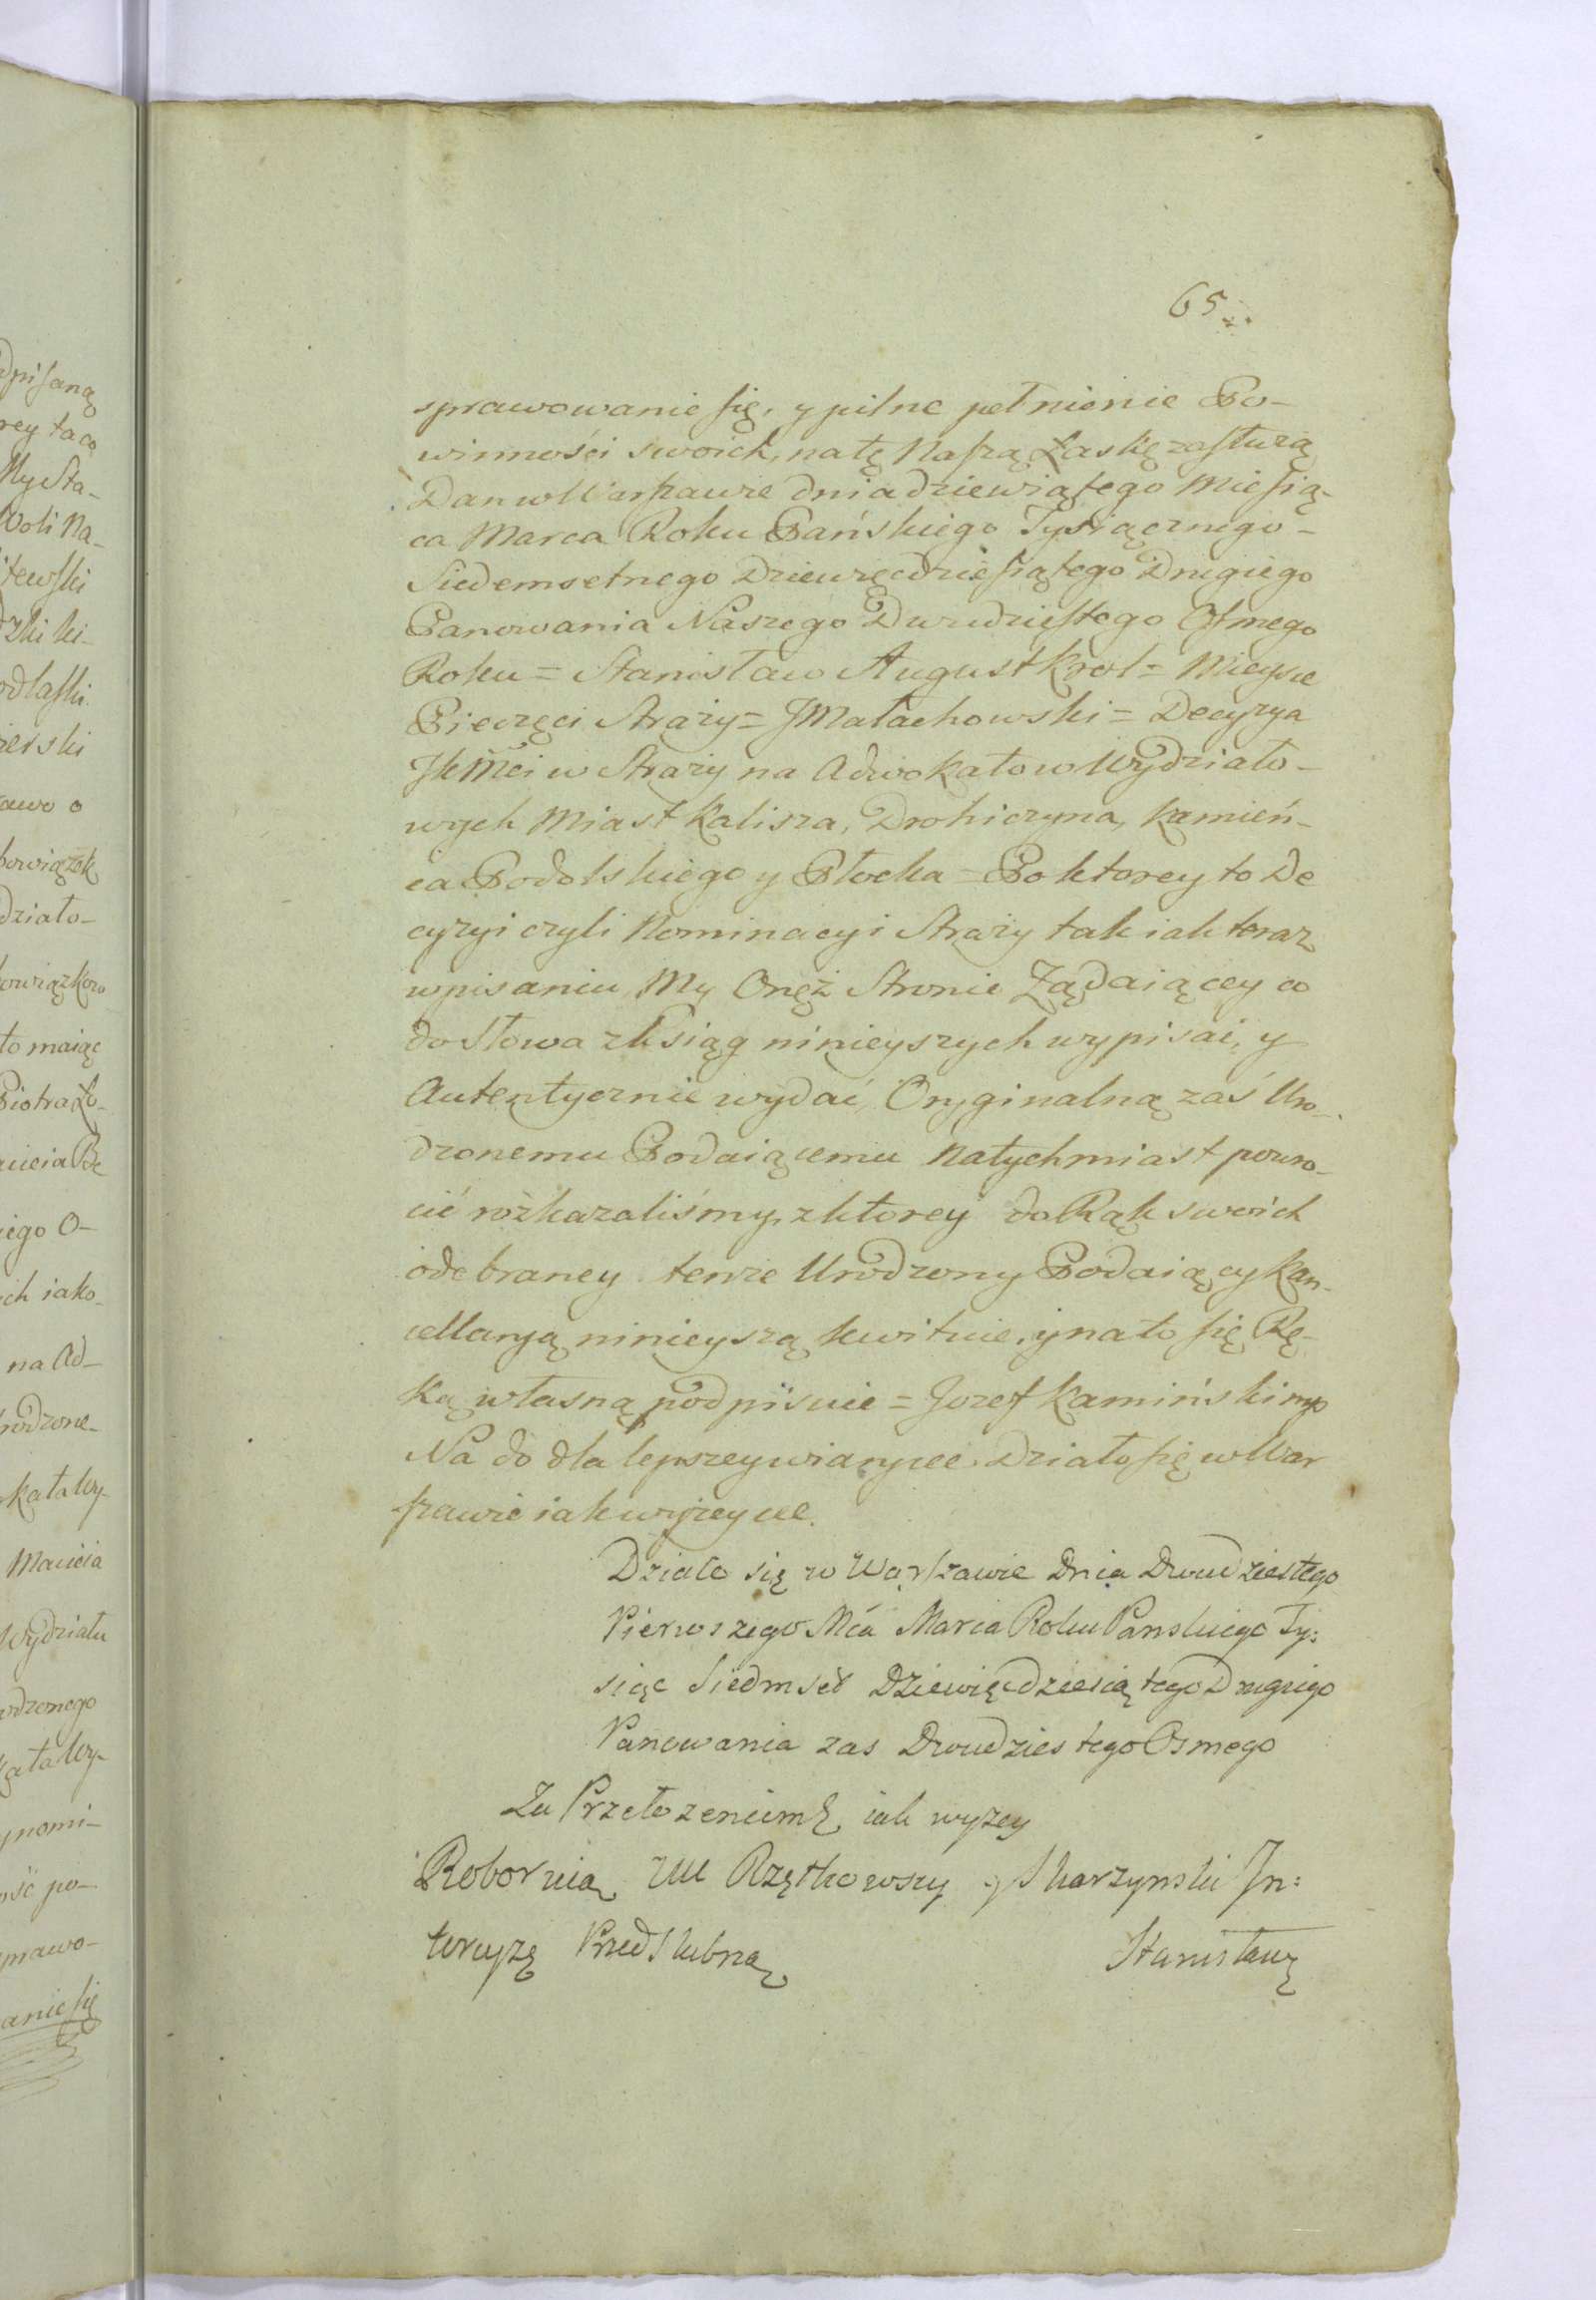 65
sprawowanie się, y pilne pełnienie Po-
winności swoich, na tę Naszą Łaskę zasłużą
Dan w Warszawie dnia dziewiątego Miesią-
ca Marca Roku Pańskiego Tysiącznego-
Siedemsetnego Dziewięcdziesiątego Drugiego
Panowania Naszego Dwudziestego Osmego
Roku = Stanisław August Krol = Mieysce
Pieczęci Straży = JMałachowski = Decyzya
JkMći w Straży na Adwokatow Wydziało-
wych Miast Kalisza, Drohiczyna, Kamień-
ca Podolskiego y Płocka = Po ktorey to De
cyzyi czyli Nominacyi Straży tak iak teraz
wpisaniu, My Onęż Stronie Żądaiącey co
do Słowa z Ksiąg ninieyszych wypisać, y
Autentycznie wydać, Oryginalną zaś Uro-
dzonemu Podaiącemu Natychmiast powro-
cić rozkazaliśmy, z ktorey do Rąk swoich
odebraney tenże Urodzony Podaiący Kan-
cellaryą ninieyszą kwituie, y na to się Rę-
ką własną podpisuie = Jozef Kamiński mp
Na do dla lepszey wiary Działo się w War
szawie iak wyżey
Działo się w Warszawie Dnia Dwudziestego
Pierwszego Mca Marca Roku Panskiego Ty:
siąc Siedmset Dziewięcdziesiątego Drugiego
Panowania zas Dwudziestego Osmego
Za Przełozeniem iak wyzey
Roboruią UU Rzętkowscy y Skarzynski In:
tercyzę Przedslubną Stanisławę
dpisaną
rey ta co
My Sta-
Woli Na-
odlaski
ierski
działo-
to maiąc
iego O-
ich iako-
na Ad-
rodzone-
kata Wy-
Wydziału
odzonego
kata Wy-
ynomi-
ość po-
anie się